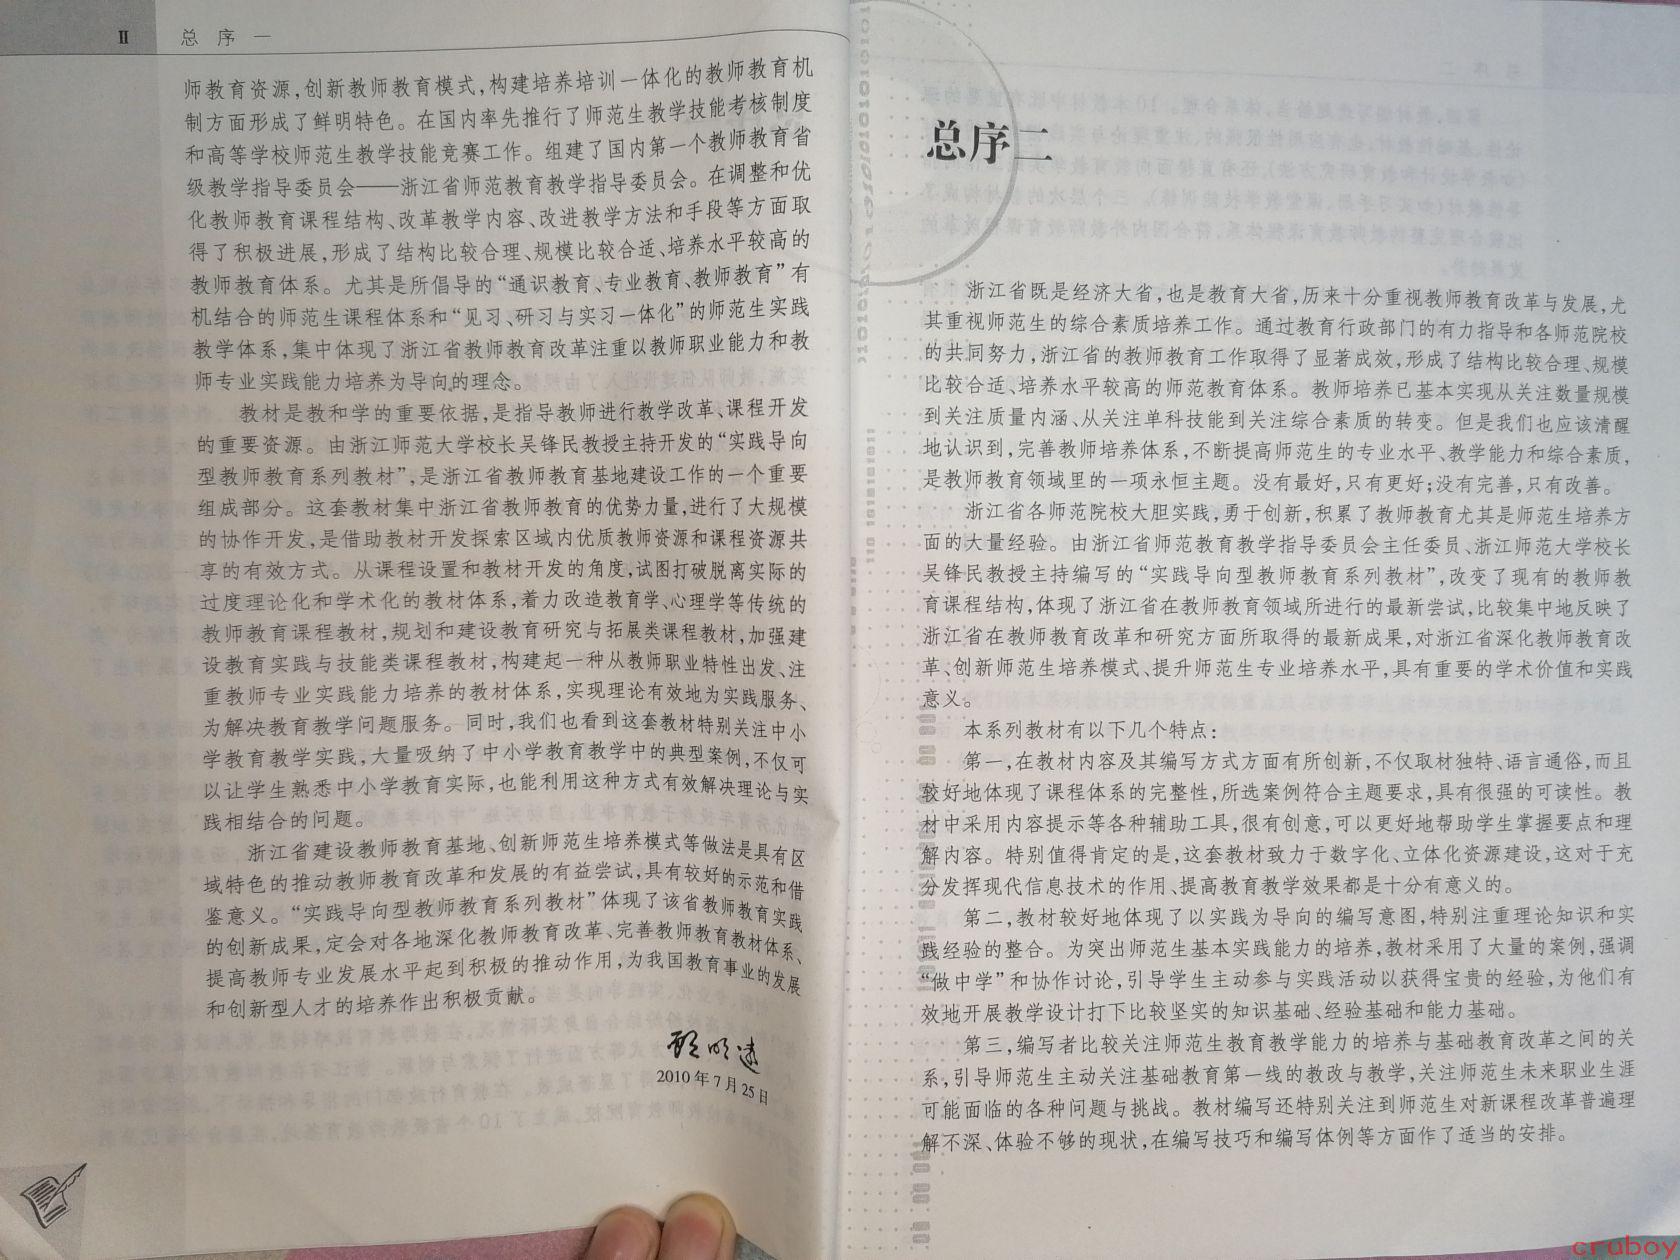 II 总 序 一
师教育资源,创新教师教育模式,构建培养培训一体化的教师教育机
制方面形成了鲜明特色。在国内率先推行了师范生教学技能考核制度
和高等学校师范生教学技能竞赛工作。组建了国内第一个教师教育省
级教学指导委员会——浙江省师范教育教学指导委员会。在调整和优
化教师教育课程结构、改革教学内容、改进教学方法和手段等方面取
得了积极进展,形成了结构比较合理、规模比较合适、培养水平较高的
教师教育体系。尤其是所倡导的“通识教育、专业教育、教师教育”有
机结合的师范生课程体系和“见习、研习与实习一体化”的师范生实践
教学体系,集中体现了浙江省教师教育改革注重以教师职业能力和教
师专业实践能力培养为导向的理念。
教材是教和学的重要依据,是指导教师进行教学改革、课程开发
的重要资源。由浙江师范大学校长吴锋民教授主持开发的“实践导向
型教师教育系列教材”,是浙江省教师教育基地建设工作的一个重要
组成部分。这套教材集中浙江省教师教育的优势力量,进行了大规模
的协作开发,是借助教材开发探索区域内优质教师资源和课程资源共
享的有效方式。从课程设置和教材开发的角度,试图打破脱离实际的
过度理论化和学术化的教材体系,着力改造教育学、心理学等传统的
教师教育课程教材,规划和建设教育研究与拓展类课程教材,加强建
设教育实践与技能类课程教材,构建起一种从教师职业特性出发、注
重教师专业实践能力培养的教材体系,实现理论有效地为实践服务、
为解决教育教学问题服务。同时,我们也看到这套教材特别关注中小
学教育教学实践,大量吸纳了中小学教育教学中的典型案例,不仅可
以让学生熟悉中小学教育实际,也能利用这种方式有效解决理论与实
践相结合的问题。
浙江省建设教师教育基地、创新师范生培养模式等做法是具有区
域特色的推动教师教育改革和发展的有益尝试,具有较好的示范和借
鉴意义。“实践导向型教师教育系列教材”体现了该省教师教育实践
的创新成果,定会对各地深化教师教育改革、完善教师教育教材体系、
提高教师专业发展水平起到积极的推动作用,为我国教育事业的发展
和创新型人才的培养作出积极贡献。
顾明远
2010年7月25日
总序二
浙江省既是经济大省,也是教育大省,历来十分重视教师教育改革与发展,尤
其重视师范生的综合素质培养工作。通过教育行政部门的有力指导和各师范院校
的共同努力,浙江省的教师教育工作取得了显著成效,形成了结构比较合理、规模
比较合适、培养水平较高的师范教育体系。教师培养已基本实现从关注数量规模
到关注质量内涵、从关注单科技能到关注综合素质的转变。但是我们也应该清醒
地认识到,完善教师培养体系,不断提高师范生的专业水平、教学能力和综合素质,
是教师教育领域里的一项永恒主题。没有最好,只有更好;没有完善,只有改善。
浙江省各师范院校大胆实践,勇于创新,积累了教师教育尤其是师范生培养方
面的大量经验。由浙江省师范教育教学指导委员会主任委员、浙江师范大学校长
吴锋民教授主持编写的“实践导向型教师教育系列教材”,改变了现有的教师教
育课程结构,体现了浙江省在教师教育领域所进行的最新尝试,比较集中地反映了
浙江省在教师教育改革和研究方面所取得的最新成果,对浙江省深化教师教育改
革、创新师范生培养模式、提升师范生专业培养水平,具有重要的学术价值和实践
意义。
本系列教材有以下几个特点:
第一,在教材内容及其编写方式方面有所创新,不仅取材独特、语言通俗,而且
较好地体现了课程体系的完整性,所选案例符合主题要求,具有很强的可读性。教
材中采用内容提示等各种辅助工具,很有创意,可以更好地帮助学生掌握要点和理
解内容。特别值得肯定的是,这套教材致力于数字化、立体化资源建设,这对于充
分发挥现代信息技术的作用、提高教育教学效果都是十分有意义的。
第二,教材较好地体现了以实践为导向的编写意图,特别注重理论知识和实
践经验的整合。为突出师范生基本实践能力的培养,教材采用了大量的案例,强调
“做中学”和协作讨论,引导学生主动参与实践活动以获得宝贵的经验,为他们有
效地开展教学设计打下比较坚实的知识基础、经验基础和能力基础。
第三,编写者比较关注师范生教育教学能力的培养与基础教育改革之间的关
系,引导师范生主动关注基础教育第一线的教改与教学,关注师范生未来职业生涯
可能面临的各种问题与挑战。教材编写还特别关注到师范生对新课程改革普遍理
解不深、体验不够的现状,在编写技巧和编写体例等方面作了适当的安排。
cruboy